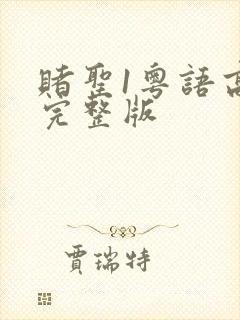 賭聖1粵語高
完整版
賈瑞特